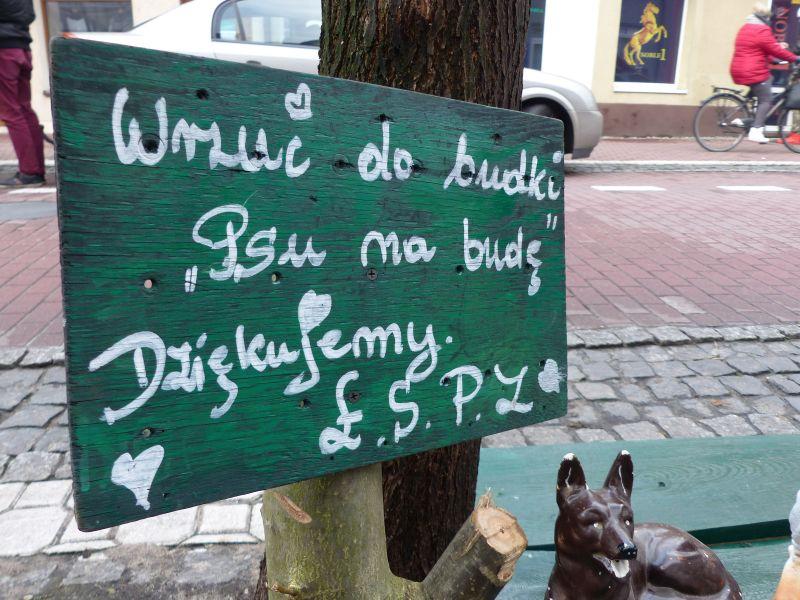 Wrzuć do budki
„Psu na budę”
Dziękujemy.
Ł.S.P.Z
NOBLE 1